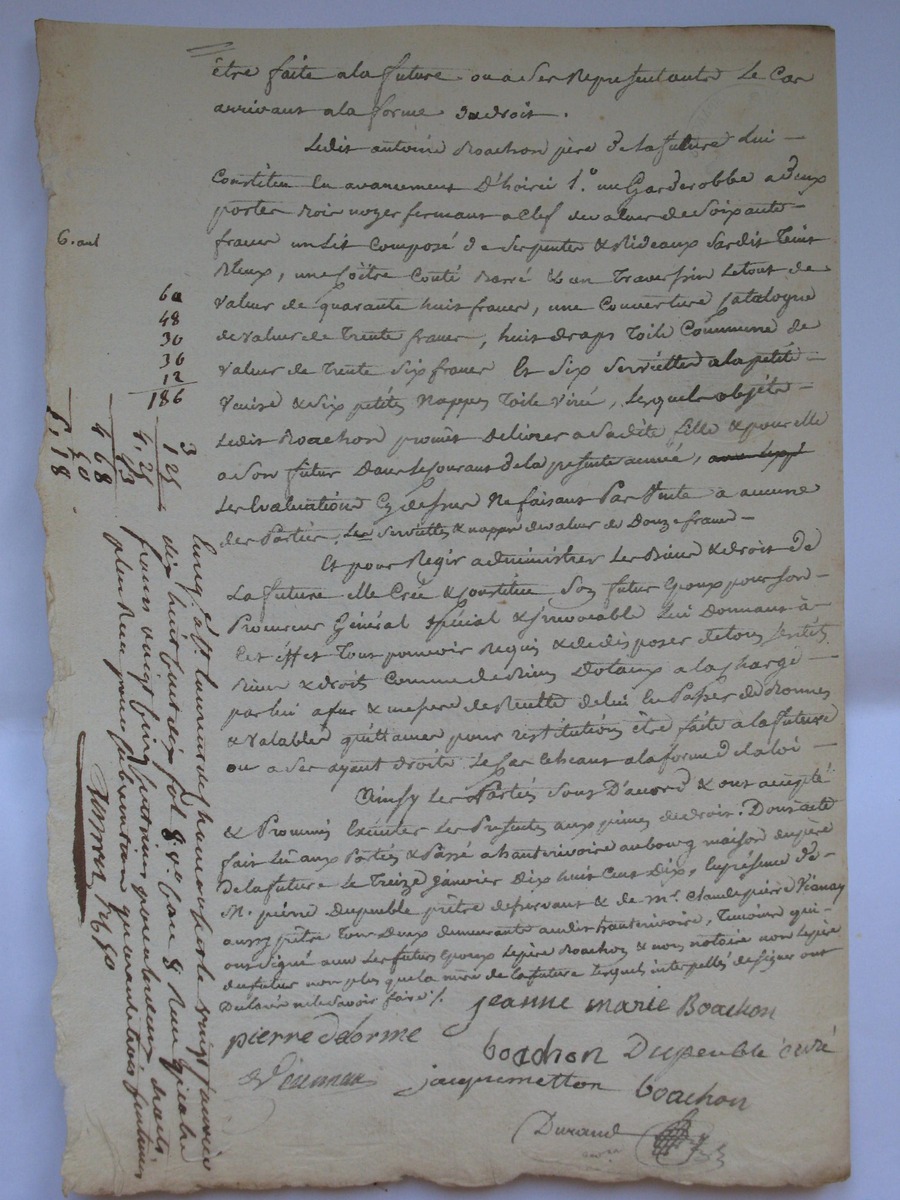 être faite a la future ou a ses Representants Le Cas
arrivant a la forme du droit.
Ledit antoine Boachon père de la future Lui
Constitue En avancement D'hoirie 1.° un Garderobbe a deux
portes Bois noyer fermant a Clef de valeur de Soixante
francs un Lit Composé de Serpentes & Rideaux Sardis teint
Bleux, une Coëtre Couté Barré & un Traversin Le tout de
Valeur de quarante huit francs, une Couverture Catalogne
de valeur de trente francs, huit draps Toile Commune de
Valeur de trente Six francs Et Six Serviettes a la petite
Venise & Six petites Nappes Toile Virée, Lesquels objets
Ledit Boachon promet délivrer a Sa dite fille & pour elle
a Son futur Dans Le Courant de la presente année,
Les Evaluations Cy dessus Ne faisant Pas Vente a aucune
des Parties, Les Serviettes & nappes de valeur de Douze francs
Et pour Regir administrer Les Biens & droits de
La future Elle Crée & Constitue Son futur Epoux pour Son
Procureur Général Spécial & irrevocable Lui Donnant à
Cet éffet Tous pouvoirs Requis & de disposer de tous Sesdits
Biens & droits Comme de Biens Dotaux a la Charge
par lui a fur & mesure de Recette de lui En Passer de Bonnes
& Valables quittances pour restitution être faite a la future
ou a Ses ayant droits Le Cas Echeant a la forme de la loi
Ainsy Les Parties Sont D'acord & ont accepté
& Promis Executer Les Presentes aux peines de droit. Dont acte
fait Lu aux Parties & Passé a hauterivoire au bourg maison du père
De la future Le Treize janvier Dix huit Cent Dix, En présence de
M. pierre Dupeuble prêtre desservant & de mr. Claude pierre Vianay
aussy prêtre Tous Deux demeurants audit hauterivoire, Témoins qui
ont Signé avec Les futurs Epoux Le père Boachon & nous notaire non Le père
du futur non plus que la mère de la future Lesquels interpellés de Signer ont
Declaré ne le Savoir faire /.
jeanne marie Boachon
pierre delorme
boachon Dupeuble curé
jacquemetton boachon
Durand
6. aul
60
48
30
36
12
186
3
1 25
4, 25
43
4 68
50
5, 18
Enreg. à St. Laurent de Chamousset le vingt janvier
dix huit cent dix fol. 8 v.° case 8 Reçu quatre
francs vingt cinq centimes pour
plus Reçu pour Subvention quarante trois centimes